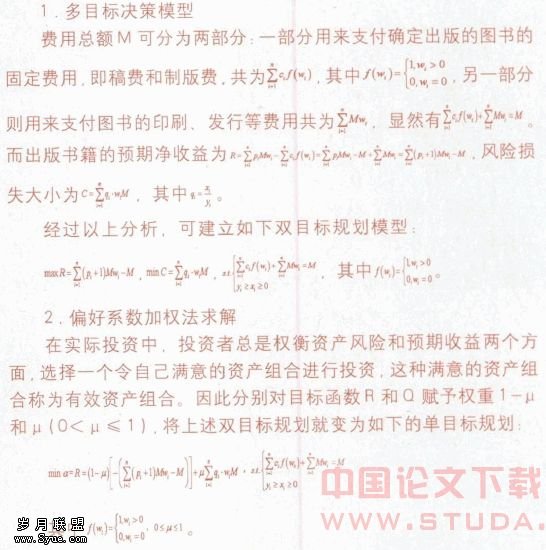 1.多目标决策模型
费用总额M可分为两部分:一部分用来支付确定出版的图书的
固定费用,即稿费和制版费,共为∑_{i=1}^{n} c_i f(w_i),其中 f(w_i)={1, w_i>0; 0, w_i=0,另一部分
则用来支付图书的印刷、发行等费用共为∑_{i=1}^{n} Mw_i,显然有∑_{i=1}^{n} c_i f(w_i)+∑_{i=1}^{n} Mw_i=M。
而出版书籍的预期净收益为 R=∑_{i=1}^{n} p_i Mw_i-∑_{i=1}^{n} c_i f(w_i)=∑_{i=1}^{n} p_i Mw_i-M+∑_{i=1}^{n} Mw_i=∑_{i=1}^{n}(p_i+1)Mw_i-M,风险损
失大小为 C=∑_{i=1}^{n} q_i·w_i M,其中 q_i=x_i/y_i。
经过以上分析,可建立如下双目标规划模型:
max R=∑_{i=1}^{n}(p_i+1)Mw_i-M,min C=∑_{i=1}^{n} q_i·w_i M,s.t.{∑_{i=1}^{n} c_i f(w_i)+∑_{i=1}^{n} Mw_i=M; y_i≥x_i≥0,其中 f(w_i)={1, w_i>0; 0, w_i=0。
2.偏好系数加权法求解
在实际投资中,投资者总是权衡资产风险和预期收益两个方
面,选择一个令自己满意的资产组合进行投资,这种满意的资产组
合称为有效资产组合。因此分别对目标函数R和Q赋予权重1-μ
和μ(0<μ≤1),将上述双目标规划就变为如下的单目标规划:
min α=R=(1-μ)[-(∑_{i=1}^{n}(p_i+1)Mw_i-M)]+μ∑_{i=1}^{n} q_i·w_i M,s.t.{∑_{i=1}^{n} c_i f(w_i)+∑_{i=1}^{n} Mw_i=M; y_i≥x_i≥0
f(w_i)={1, w_i>0; 0, w_i=0,0≤μ≤1。
中国论文下载
WWW.STUDA.
岁月联盟
www.5yue.com